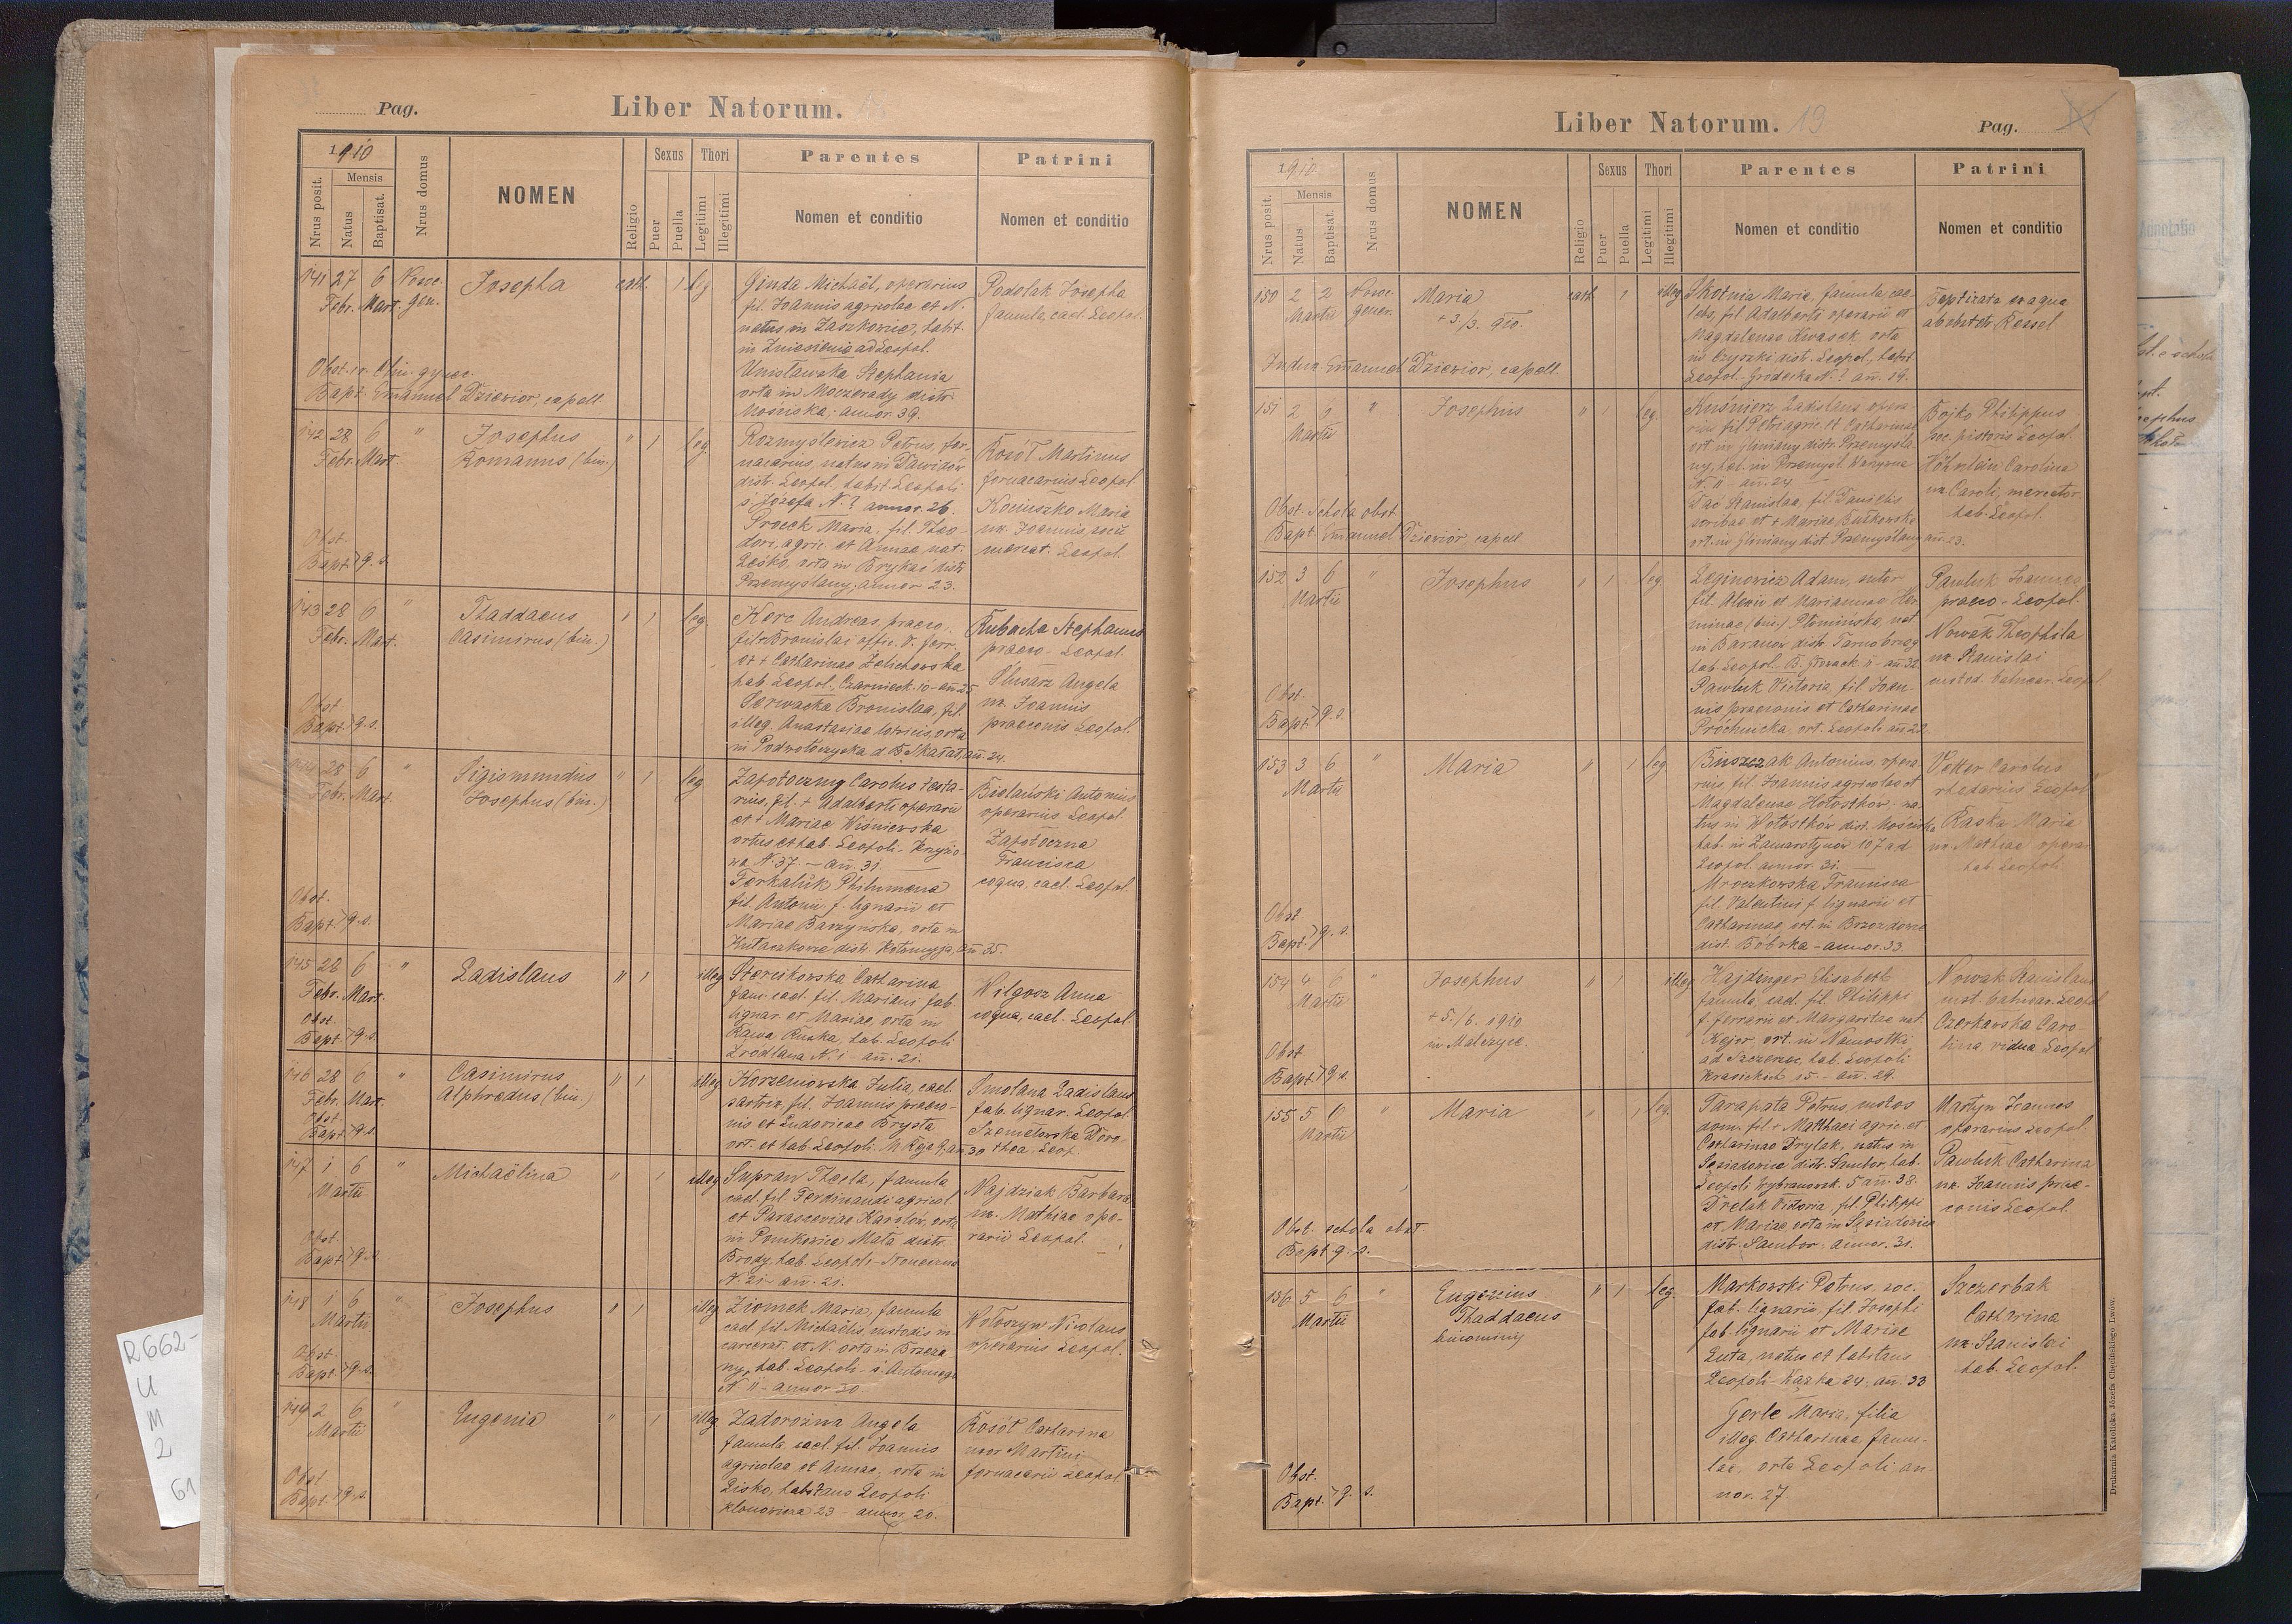 Pag.
Liber Natorum.
1910
Nrus posit.
Mensis
Natus
Baptisat.
Nrus domus
NOMEN
Religio
Sexus
Puer
Puella
Thori
Legitimi
Illegitimi
Parentes
Nomen et conditio
Patrini
Nomen et conditio
141 27 6
Febr. Mart. gen.
Josepha
cath. 1 leg
Ginda Michaël, operarius
fil. Joannis agricolae et N.
natus in Zaszkowice, habit.
in Zniesienie ad Leopol.
Unislawska Stephania
orta in Moczerady distr.
Mościska, annor. 39.
Podolak Josepha
famula, cael. Leopol.
Bapt. Emanuel Dziewior, capell.
142 28 6 "
Febr. Mart.
Josephus
Romanus (bin.)
" 1 leg
Rozmyslewicz Petrus, for-
nacarius, natus in Dawidów
distr. Leopol. habit. Leopoli
s. Józefa N.? annor. 26.
Procek Maria, fil. Theo-
dori, agric. et Annae, nat.
Leśko, orta in Brykai distr.
Przemyslany, annor 23.
Kosót Martinus
fornacarius Leopol
Kościuszko Maria
ux. Joannis, socii
mercat. Leopol.
Obst.
Bapt. q. s.
143 28 6 "
Febr. Mart.
Thaddaeus
Casimirus (bin.)
" 1 leg.
Kerc Andreas, praeco,
fil. + Bronislai offic. v. ferr.
et + Catharinae Zelichowska
hab. Leopol., Czarnieck. 10 - an 25
Serwacka Bronislaa, fil.
illeg. Anastasiae lotricis, orta
in Podwołoczyska d. Skałat, an. 24.
Kubacha Stephanus
praeco - Leopol.
Ślusarz Angela
ux. Joannis
praeconis Leopol.
Obst.
Bapt. q. s.
144 28 6 "
Febr. Mart.
Sigismundus
Josephus (bin.)
" 1 leg
Zapotoczny Carolus testa-
rius, fil. + Adalberti operarii
et + Mariae Wiśniewska
ortus et hab. Leopoli - Krzyżo-
wa N. 37. - an. 31
Terkaluk Philumena
fil. Antonii, f. lignarii et
Mariae Baczyńska, orta in
distr. Kołomyja, an 35.
Bielański Antonius
operarius Leopol.
Zapotoczna
Francisca
coqua, cael. Leopol.
Obst.
Bapt. q. s.
145 28 6 "
Febr. Mart.
Ladislaus
" 1 illeg
Catharina
fam. cael. fil. Mariani fab.
lignar. et Mariae, orta in
Rawa Ruska, hab. Leopoli
Źrodlana N. 1 - an. 21.
Wilgosz Anna
coqua, cael. Leopol.
Obst.
Bapt. q. s.
146 28 6 "
Febr. Mart.
Casimirus
Alphredus (bin.)
" 1 illeg
Korzeniowska Julia, cael.
sartrix, fil. Joannis praeco-
nis et Ludovicae Brysta
ort. et hab. Leopoli. M. Reja 9, an 30
Smolana Ladislaus
fab. lignar. Leopol.
Szemetowska Doro-
thea Leop.
Obst.
Bapt. q. s.
147 1 6 "
Martii
Michaëlina
" 1 illeg
Supran Thecla, famula
cael. fil. Ferdinandi agricol.
et Parasceviae Karolów, orta
in Ponikowica Mała distr.
Brody, hab. Leopoli -
N. 21 - an. 21.
Najdziak Barbara
ux. Mathiae ope-
rarii Leopol.
Obst.
Bapt. q. s.
148 1 6 "
Martii
Josephus
" 1 illeg
Ziomek Maria, famula
cael. fil. Michaëlis, custodis in
carcerat. et N. orta in Brzeża-
ny, hab. Leopoli - s. Antoniego
N. 11 - annor 20.
Wołoszyn Nicolaus
operarius Leopol.
Obst.
Bapt. q. s.
149 2 6 "
Martii
Eugenia
" 1 illeg
Zadorożna Angela
famula, cael. fil. Joannis
agricolae et Annae, orta in
Lisko, habitans Leopoli
Klonowicza 23 - annor. 20.
Kosót Catharina
uxor Martini
fornacarii Leopol.
Obst.
Bapt. q. s.
Liber Natorum. 19
Pag.
1910
Nrus posit.
Mensis
Natus
Baptisat.
Nrus domus
NOMEN
Religio
Sexus
Puer
Puella
Thori
Legitimi
Illegitimi
Parentes
Nomen et conditio
Patrini
Nomen et conditio
150 2 2
Martii gener.
Maria
+ 3./3. 910.
cath. 1 illeg
Skotnia Maria, famula, cae-
lebs, fil. Adalberti operarii et
Magdalenae Kwasek, orta
in Czyszki distr. Leopol., habit.
Leopol. Grodecka N.? an. 19.
Baptizata ex aqua
ab obstetr. Kessel
Emanuel Dziewior, capell.
151 2 6 "
Martii
Josephus
" leg.
Kuśnierz Ladislaus opera-
rius fil. Petri agric. et Catharinae
ort. in Gliniany distr. Przemysla-
ny, hab. in Przemysl.
N. 11 - an. 24
Dac Stanislaa, fil. Danielis
scribae et + Mariae Buszkowska
ort. in Gliniany dist. Przemyslany an 23.
Bojko Philippus
soc. pistoris Leopol.
Höhnlein Carolina
ux. Caroli, mercator.
hab. Leopol.
Obst. Schola obst.
Bapt. Emanuel Dziewior, capell
152 3 6 "
Martii
Josephus
" 1 leg
Leginowicz Adam, sutor
fil. Alexii et Mariannae Her-
minae (bin.) Płomińska, nat.
in Baranów distr. Tarnobrzeg
hab. Leopol. B. Głowack. 11 - an 32
Pawluk Victoria fil. Joan-
nis praeconis et Catharinae
Próchnicka, ort. Leopoli an 22.
Pawluk Joannes
praeco - Leopol.
Nowak Theophila
ux. Stanislai
custod. balnear. Leopol
Obst.
Bapt. q. s.
153 3 6 "
Martii
Maria
" 1 leg
Buszczak Antonius, opera-
rius, fil. Joannis agricolae et
Magdalenae Hołostków, na-
tus in Wołostków dist. Mościska
hab. in Zamarstynów 107 ad
Leopol. annor. 31.
Mroczkowska Francisca
fil. Valentini f. lignarii et
Catharinae, ort. in Brzozdowce
dist. Bóbrka - annor. 33.
Vetter Carolus
rhedarius Leopol
Raska Maria
ux. Mathiae operar.
hab. Leopoli
Obst.
Bapt. q. s.
154 4 6 "
Martii
Josephus
+ 5./6. 1910
in Malczyce.
" 1 illeg
Hajdinger Elisabeth
famula, cael. fil. Philippi
f. ferrarii et Margaritae nat.
Rejer, ort. in
ad Szczerzec, hab. Leopoli
Krasickich 15. - an. 29.
Nowak Stanislaus
cust. balnear. Leopol
Ozerkawska Caro-
lina vidua Leopol
Obst.
Bapt. q. s.
155 5 6 "
Martii
Maria
" 1 leg.
Tarapata Petrus, custos
dom. fil. + Matthaei agric. et
Catharinae Drylak, natus in
Sąsiadowice distr. Sambor, hab.
Leopoli Wybranowsk. 5 an. 38.
Drelak Victoria, fil. Philippi
et Mariae, orta in Sąsiadowice
distr. Sambor, annor. 31.
Martyn Joannes
operarius Leopol.
Pawluk Catharina
ux. Joannis prae-
conis Leopol.
Obst. schola obst.
Bapt. q. s.
156 5 6 "
Martii
Eugenius
Thaddaeus
binominis
" 1 leg.
Markowski Petrus, soc.
fab. lignarii, fil. Josephi
fab. lignarii et Mariae
Luta, natus et habitans
Leopoli - Kącka 24. an. 33
Gerle Maria, filia
illeg. Catharinae famu-
lae, orta Leopoli an-
nor. 27.
Szczerbak
Catharina
ux. Stanislai
hab. Leopol.
Obst.
Bapt. q. s.
Drukarnia Katolicka Józefa Chęcińskiego Lwów.
R662-
U
M
2
61